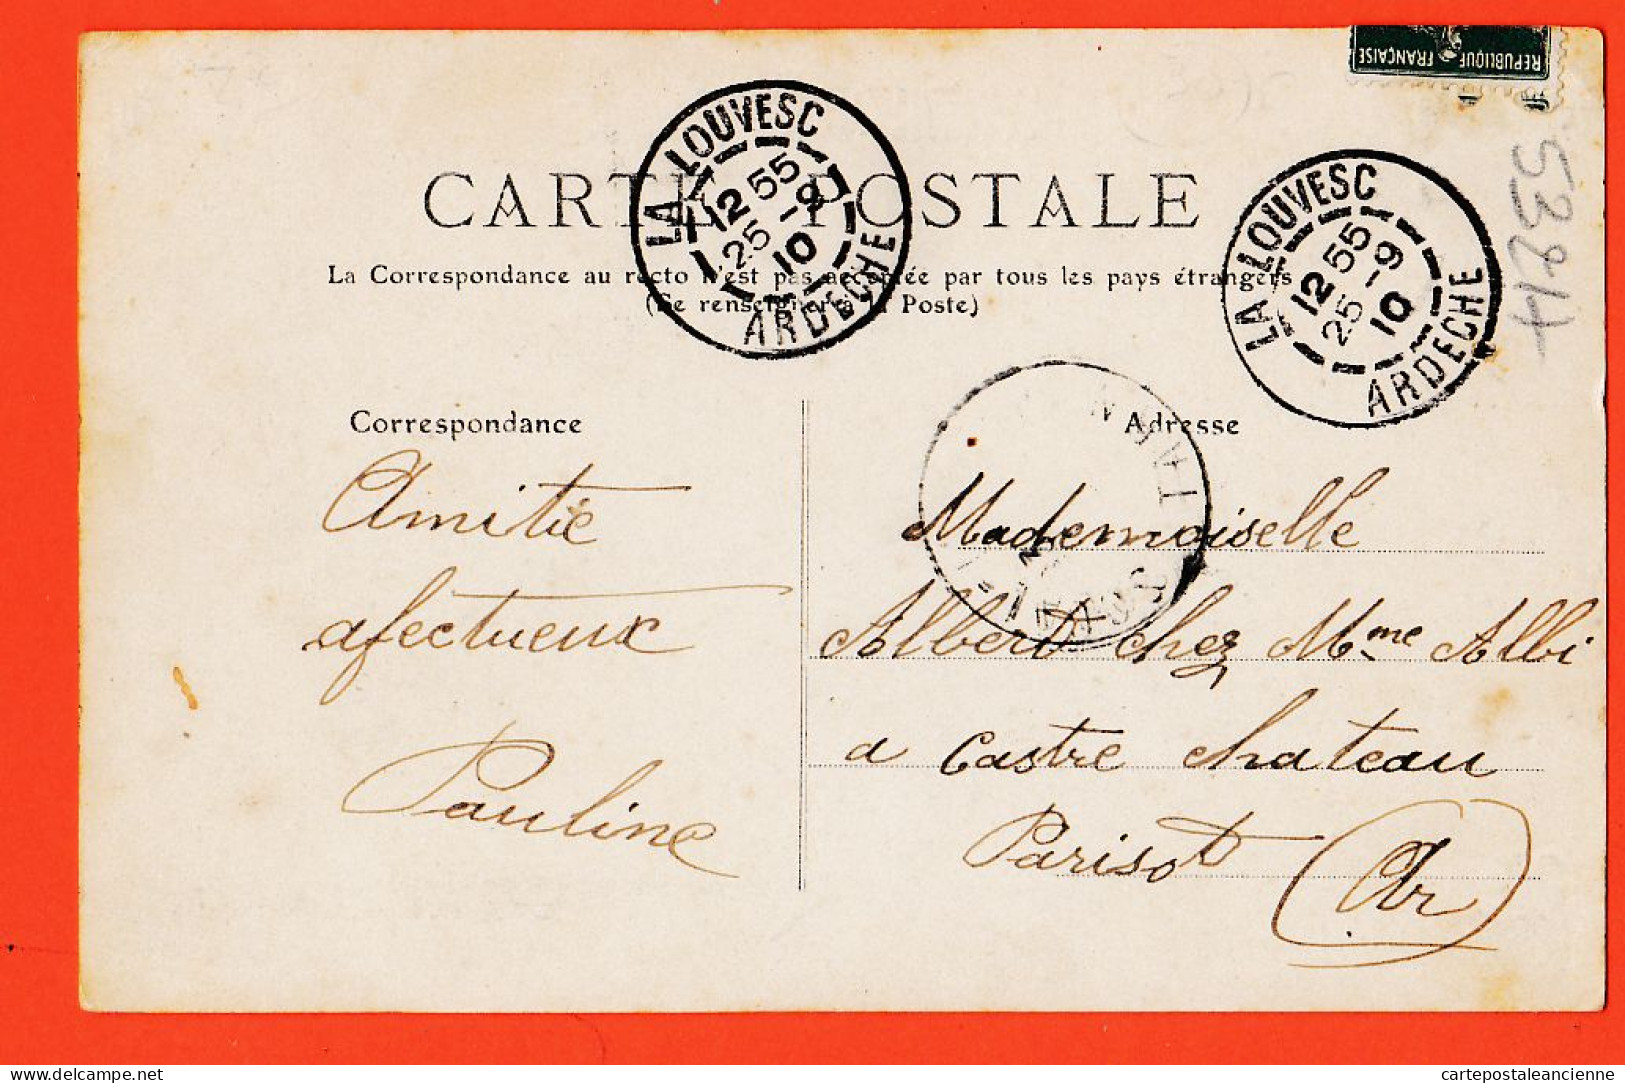 REPUBLIQUE FRANÇAISE
53214
CARTE POSTALE
LA LOUVESC
12 55
25 - 9
10
ARDECHE
LA LOUVESC
12 55
25 - 9
10
ARDECHE
La Correspondance au recto n'est pas acceptée par tous les pays étrangers
(Se renseigner à la Poste)
Correspondance
Adresse
TARN
Amitie
afectueux
Pauline
Mademoiselle
Albert chez Mme Albi
a Castre chateau
Parisot
delcampe.net
cartepostaleancienne